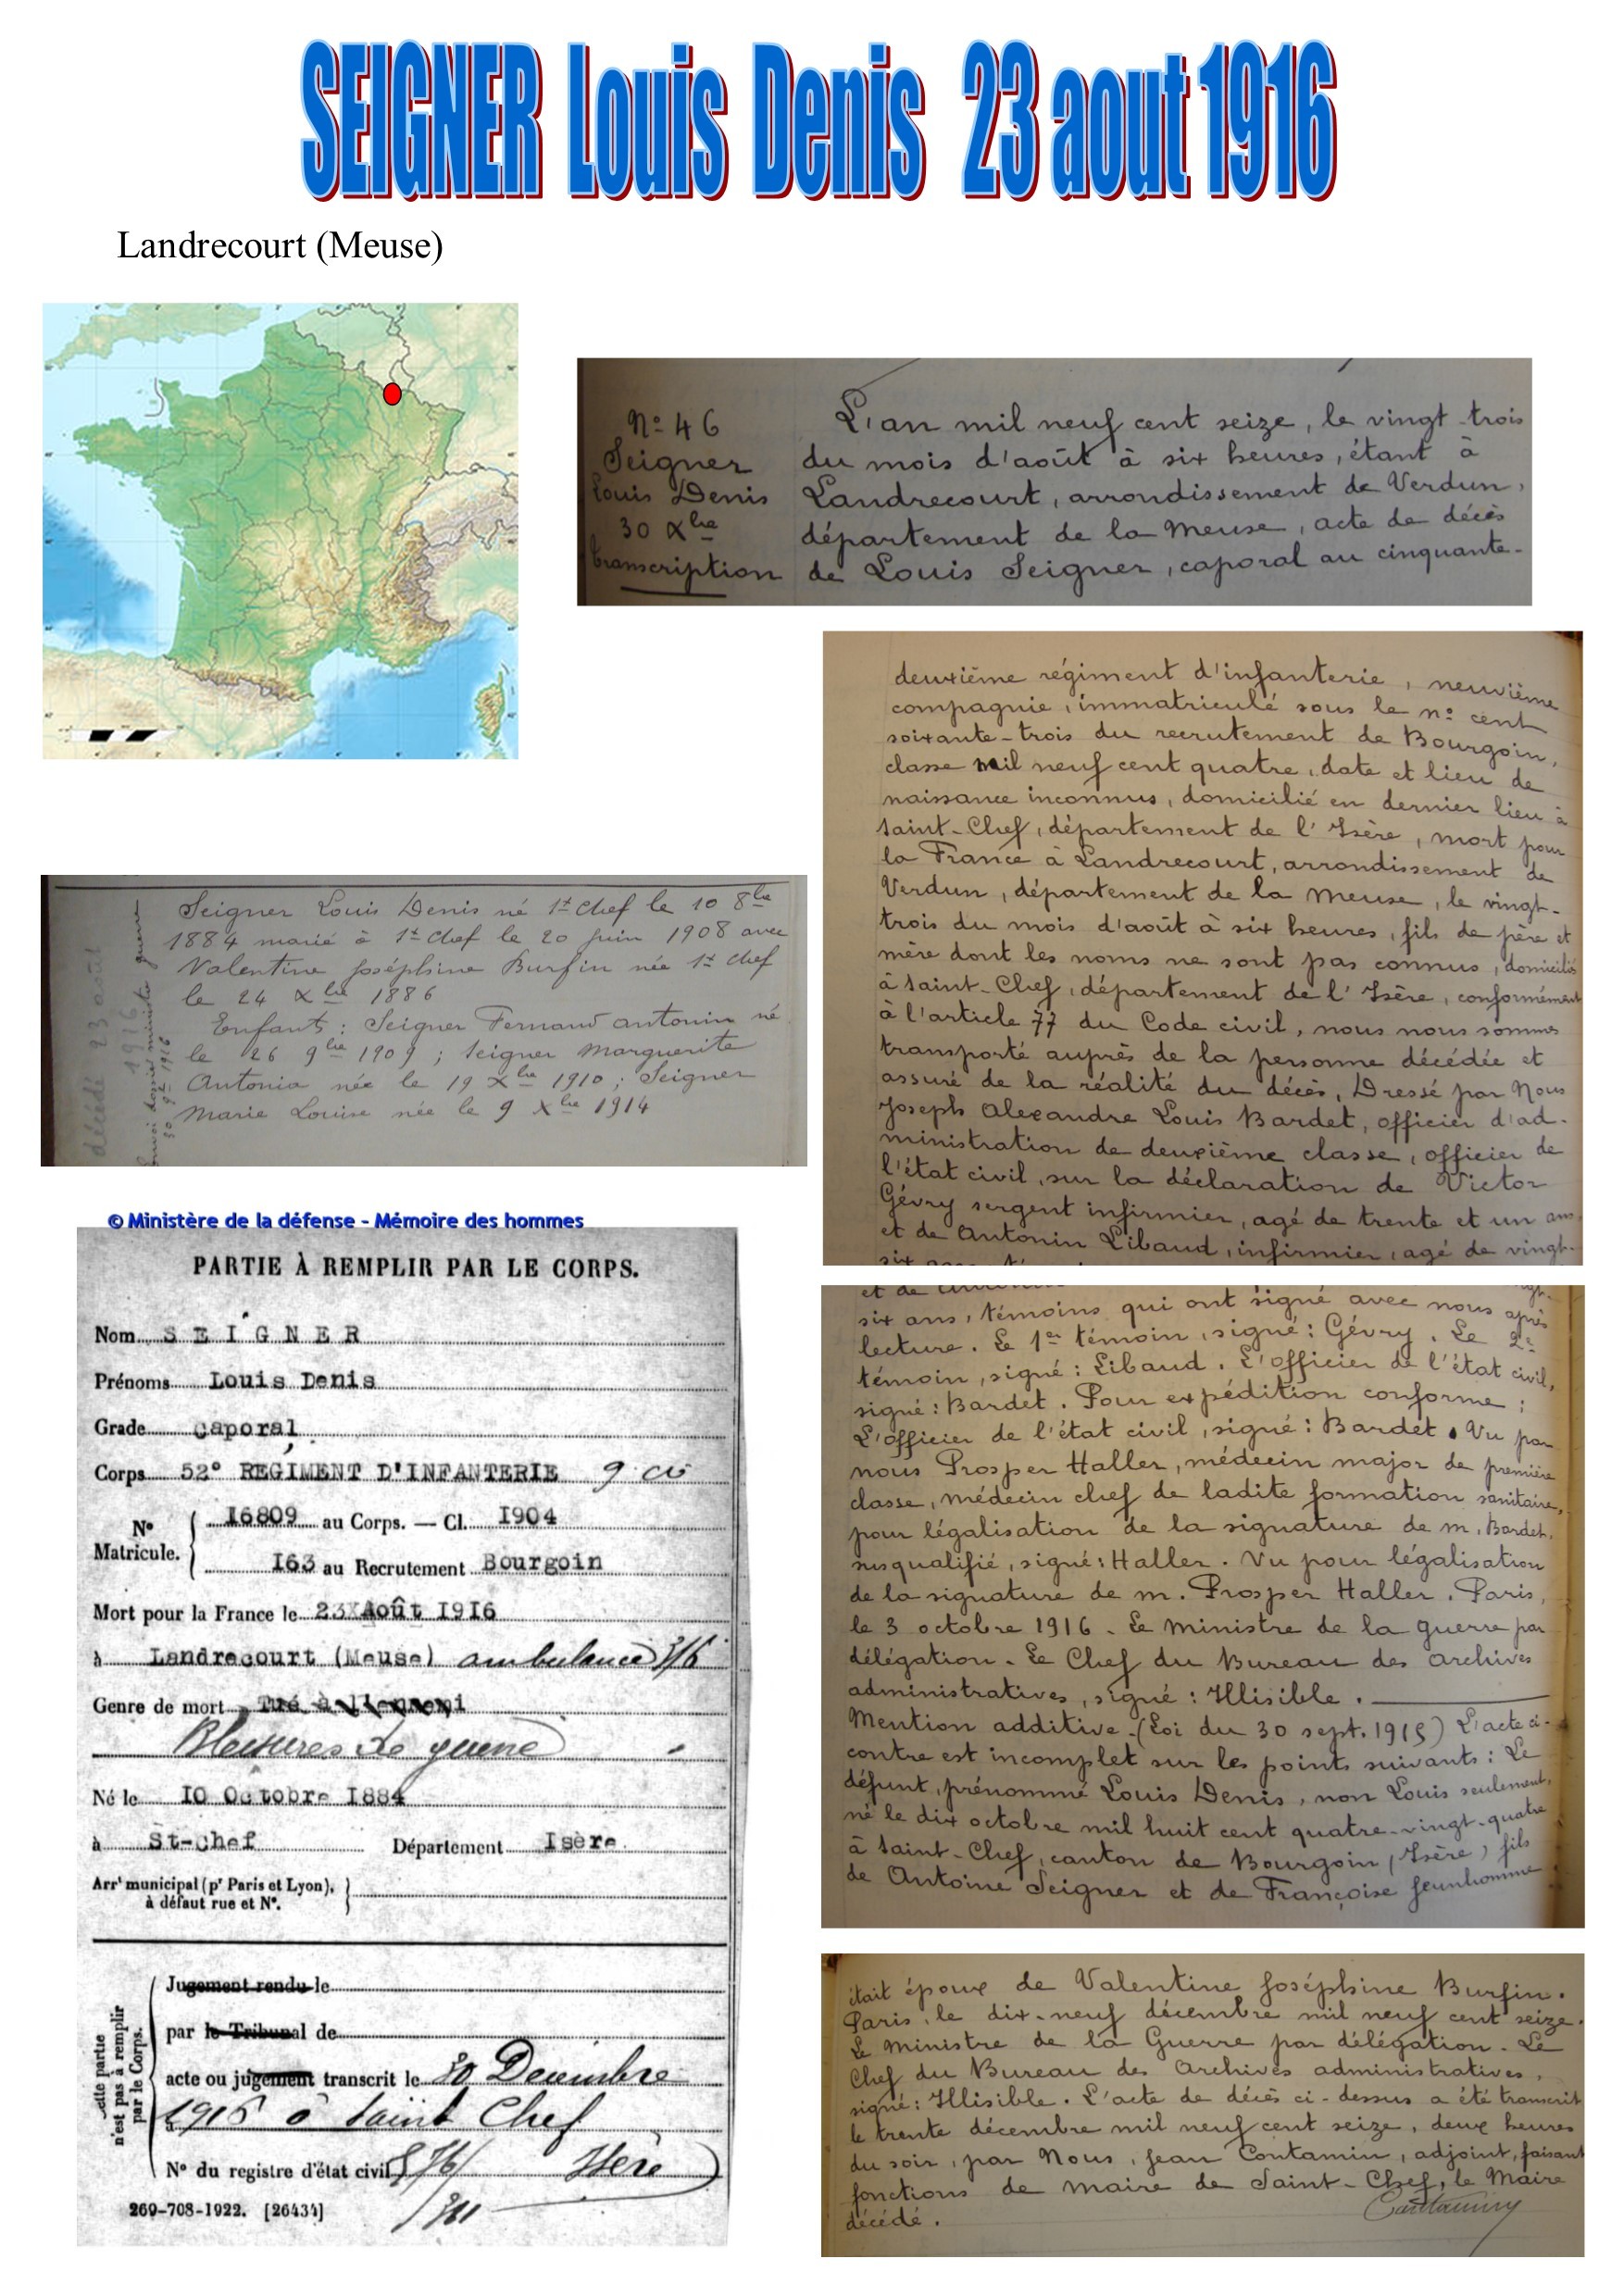 SEIGNER Louis Denis 23 aout 1916
Landrecourt (Meuse)
Nº 46
Seigner
Louis Denis
30 Xbre
transcription
L'an mil neuf cent seize, le vingt-trois
du mois d'août à six heures, étant à
Landrecourt, arrondissement de Verdun,
département de la Meuse, acte de décès
de Louis Seigner, caporal au cinquante-
deuxième régiment d'infanterie, neuvième
compagnie, immatriculé sous le nº cent
soixante-trois du recrutement de Bourgoin,
classe mil neuf cent quatre, date et lieu de
naissance inconnus, domicilié en dernier lieu à
Saint-Chef, département de l'Isère, mort pour
la France à Landrecourt, arrondissement de
Verdun, département de la Meuse, le vingt-
trois du mois d'août à six heures, fils de père et
mère dont les noms ne sont pas connus, domiciliés
à Saint-Chef, département de l'Isère, conformément
à l'article 77 du Code civil, nous nous sommes
transporté auprès de la personne décédée et
assuré de la réalité du décès, Dressé par Nous
Joseph Alexandre Louis Bardet, officier d'ad-
ministration de deuxième classe, officier de
l'état civil, sur la déclaration de Victor
Gévry sergent infirmier, agé de trente et un ans,
et de Antonin Libaud, infirmier, agé de vingt-
six ans, témoins qui ont signé avec nous après
lecture. Le 1er témoin, signé: Gévry. Le 2e
témoin, signé: Libaud. L'officier de l'état civil,
signé: Bardet. Pour expédition conforme;
L'officier de l'état civil, signé: Bardet. Vu par
nous Prosper Haller, médecin major de première
classe, médecin chef de ladite formation sanitaire,
pour légalisation de la signature de M. Bardet,
susqualifié, signé: Haller. Vu pour légalisation
de la signature de M. Prosper Haller. Paris,
le 3 octobre 1916. Le Ministre de la guerre par
délégation. Le Chef du Bureau des Archives
administratives, signé: Illisible.
Mention additive. (Loi du 30 sept. 1915) L'acte ci-
contre est incomplet sur les points suivants: Le
défunt, prénommé Louis Denis, non Louis seulement,
né le dix octobre mil huit cent quatre-vingt-quatre
à Saint-Chef, canton de Bourgoin (Isère) fils
de Antoine Seigner et de Françoise Jeunhomme
était époux de Valentine Joséphine Burfin.
Paris, le dix-neuf décembre mil neuf cent seize.
Le Ministre de la Guerre par délégation. Le
Chef du Bureau des Archives administratives,
signé: Illisible. L'acte de décès ci-dessus a été transcrit
le trente décembre mil neuf cent seize, deux heures
du soir, par Nous, Jean Contamin, adjoint, faisant
fonctions de maire de Saint-Chef, le Maire
décédé.
Contamin
Seigner Louis Denis né St Chef le 10 8bre
1884 marié à St Chef le 20 juin 1908 avec
Valentine Joséphine Burfin née St Chef
le 24 Xbre 1886
Enfants: Seigner Fernand Antonin né
le 26 9bre 1909; Seigner Marguerite
Antonia née le 19 Xbre 1910; Seigner
Marie Louise née le 9 Xbre 1914
décédé 23 août
1916
guerre
© Ministère de la défense - Mémoire des hommes
PARTIE À REMPLIR PAR LE CORPS.
Nom SEIGNER
Prénoms Louis Denis
Grade caporal
Corps 52º REGIMENT D'INFANTERIE 9 Cie
Nº Matricule. 16809 au Corps. — Cl. 1904
163 au Recrutement Bourgoin
Mort pour la France le 23 Août 1916
à Landrecourt (Meuse) ambulance 3/6
Genre de mort Tué à l'ennemi
Blessures de guerre
Né le 10 Octobre 1884
à St-Chef Département Isère.
Arrt municipal (pr Paris et Lyon),
à défaut rue et Nº.
Cette partie
n'est pas à remplir
par le Corps.
Jugement rendu le
par le Tribunal de
acte ou jugement transcrit le 30 Décembre
1916 à Saint Chef
Nº du registre d'état civil Isère
269-708-1922. [26434]